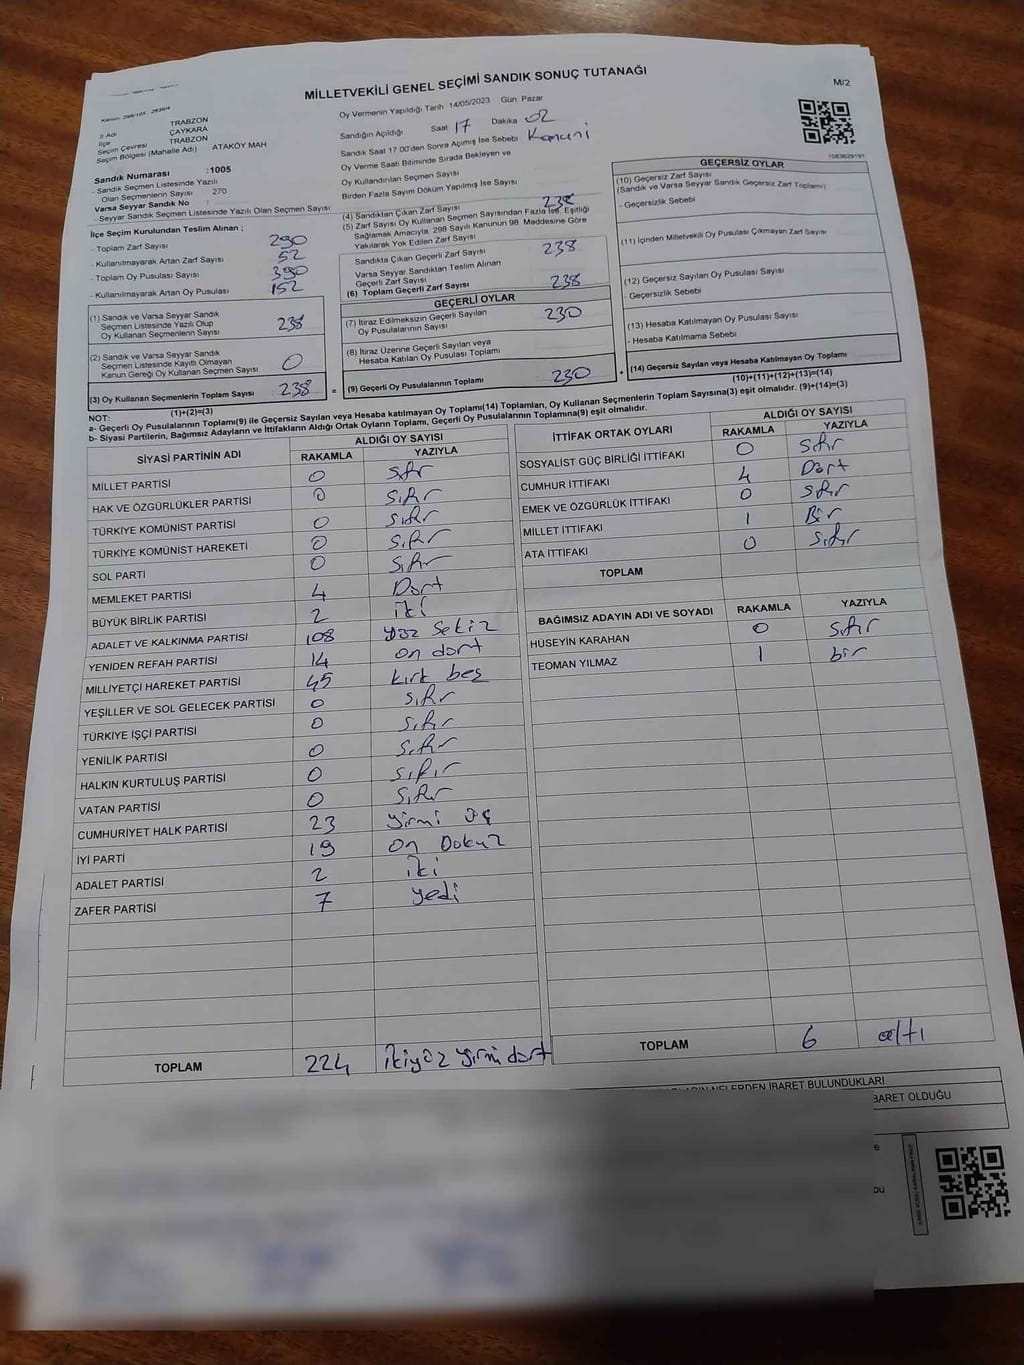 MİLLETVEKİLİ GENEL SEÇİMİ SANDIK SONUÇ TUTANAĞI
M/2
İl Adı TRABZON
İlçe ÇAYKARA
Seçim Çevresi TRABZON
Seçim Bölgesi (Mahalle Adı) ATAKÖY MAH
Sandık Numarası :1005
- Sandık Seçmen Listesinde Yazılı
Olan Seçmenlerin Sayısı 270
Varsa Seyyar Sandık No :
- Seyyar Sandık Seçmen Listesinde Yazılı Olan Seçmen Sayısı
Oy Vermenin Yapıldığı Tarih 14/05/2023 Gün: Pazar
Sandığın Açıldığı Saat 17 Dakika 02
Sandık Saat 17.00'den Sonra Açılmış İse Sebebi Kanuni
Oy Verme Saati Bitiminde Sırada Bekleyen ve
Oy Kullandırılan Seçmen Sayısı
Birden Fazla Sayım Döküm Yapılmış İse Sayısı
İlçe Seçim Kurulundan Teslim Alınan ;
- Toplam Zarf Sayısı 290
- Kullanılmayarak Artan Zarf Sayısı 52
- Toplam Oy Pusulası Sayısı 390
- Kullanılmayarak Artan Oy Pusulası 152
(1) Sandık ve Varsa Seyyar Sandık
Seçmen Listesinde Yazılı Olup
Oy Kullanan Seçmenlerin Sayısı 238
(2) Sandık ve Varsa Seyyar Sandık
Seçmen Listesinde Kayıtlı Olmayan
Kanun Gereği Oy Kullanan Seçmen Sayısı 0
(3) Oy Kullanan Seçmenlerin Toplam Sayısı 238
(1)+(2)=(3)
(4) Sandıktan Çıkan Zarf Sayısı 238
(5) Zarf Sayısı Oy Kullanan Seçmen Sayısından Fazla İse, Eşitliği
Sağlamak Amacıyla, 298 Sayılı Kanunun 98. Maddesine Göre
Yakılarak Yok Edilen Zarf Sayısı
Sandıkta Çıkan Geçerli Zarf Sayısı 238
Varsa Seyyar Sandıktan Teslim Alınan
Geçerli Zarf Sayısı
(6) Toplam Geçerli Zarf Sayısı 238
GEÇERLİ OYLAR
(7) İtiraz Edilmeksizin Geçerli Sayılan
Oy Pusulalarının Sayısı 230
(8) İtiraz Üzerine Geçerli Sayılan veya
Hesaba Katılan Oy Pusulası Toplamı
= (9) Geçerli Oy Pusulalarının Toplamı 230
GEÇERSİZ OYLAR
(10) Geçersiz Zarf Sayısı
(Sandık ve Varsa Seyyar Sandık Geçersiz Zarf Toplamı)
- Geçersizlik Sebebi
(11) İçinden Milletvekili Oy Pusulası Çıkmayan Zarf Sayısı
(12) Geçersiz Sayılan Oy Pusulası Sayısı
- Geçersizlik Sebebi
(13) Hesaba Katılmayan Oy Pusulası Sayısı
- Hesaba Katılmama Sebebi
+ (14) Geçersiz Sayılan veya Hesaba Katılmayan Oy Toplamı
(10)+(11)+(12)+(13)=(14)
NOT:
a- Geçerli Oy Pusulalarının Toplamı(9) ile Geçersiz Sayılan veya Hesaba katılmayan Oy Toplamı(14) Toplamları, Oy Kullanan Seçmenlerin Toplam Sayısına(3) eşit olmalıdır. (9)+(14)=(3)
b- Siyasi Partilerin, Bağımsız Adayların ve İttifakların Aldığı Ortak Oyların Toplamı, Geçerli Oy Pusulalarının Toplamına(9) eşit olmalıdır.
SİYASİ PARTİNİN ADI ALDIĞI OY SAYISI
RAKAMLA YAZIYLA
MİLLET PARTİSİ 0 sıfır
HAK VE ÖZGÜRLÜKLER PARTİSİ 0 sıfır
TÜRKİYE KOMÜNİST PARTİSİ 0 sıfır
TÜRKİYE KOMÜNİST HAREKETİ 0 sıfır
SOL PARTİ 0 sıfır
MEMLEKET PARTİSİ 4 Dört
BÜYÜK BİRLİK PARTİSİ 2 iki
ADALET VE KALKINMA PARTİSİ 108 yüz sekiz
YENİDEN REFAH PARTİSİ 14 on dört
MİLLİYETÇİ HAREKET PARTİSİ 45 kırk beş
YEŞİLLER VE SOL GELECEK PARTİSİ 0 sıfır
TÜRKİYE İŞÇİ PARTİSİ 0 sıfır
YENİLİK PARTİSİ 0 sıfır
HALKIN KURTULUŞ PARTİSİ 0 sıfır
VATAN PARTİSİ 0 sıfır
CUMHURİYET HALK PARTİSİ 23 yirmi üç
İYİ PARTİ 19 on Dokuz
ADALET PARTİSİ 2 iki
ZAFER PARTİSİ 7 yedi
TOPLAM 224 ikiyüz yirmi dört
İTTİFAK ORTAK OYLARI ALDIĞI OY SAYISI
RAKAMLA YAZIYLA
SOSYALİST GÜÇ BİRLİĞİ İTTİFAKI 0 sıfır
CUMHUR İTTİFAKI 4 Dört
EMEK VE ÖZGÜRLÜK İTTİFAKI 0 sıfır
MİLLET İTTİFAKI 1 Bir
ATA İTTİFAKI 0 sıfır
TOPLAM
BAĞIMSIZ ADAYIN ADI VE SOYADI RAKAMLA YAZIYLA
HÜSEYİN KARAHAN 0 sıfır
TEOMAN YILMAZ 1 bir
TOPLAM 6 altı
NELERDEN İBARET BULUNDUKLARI
BARET OLDUĞU